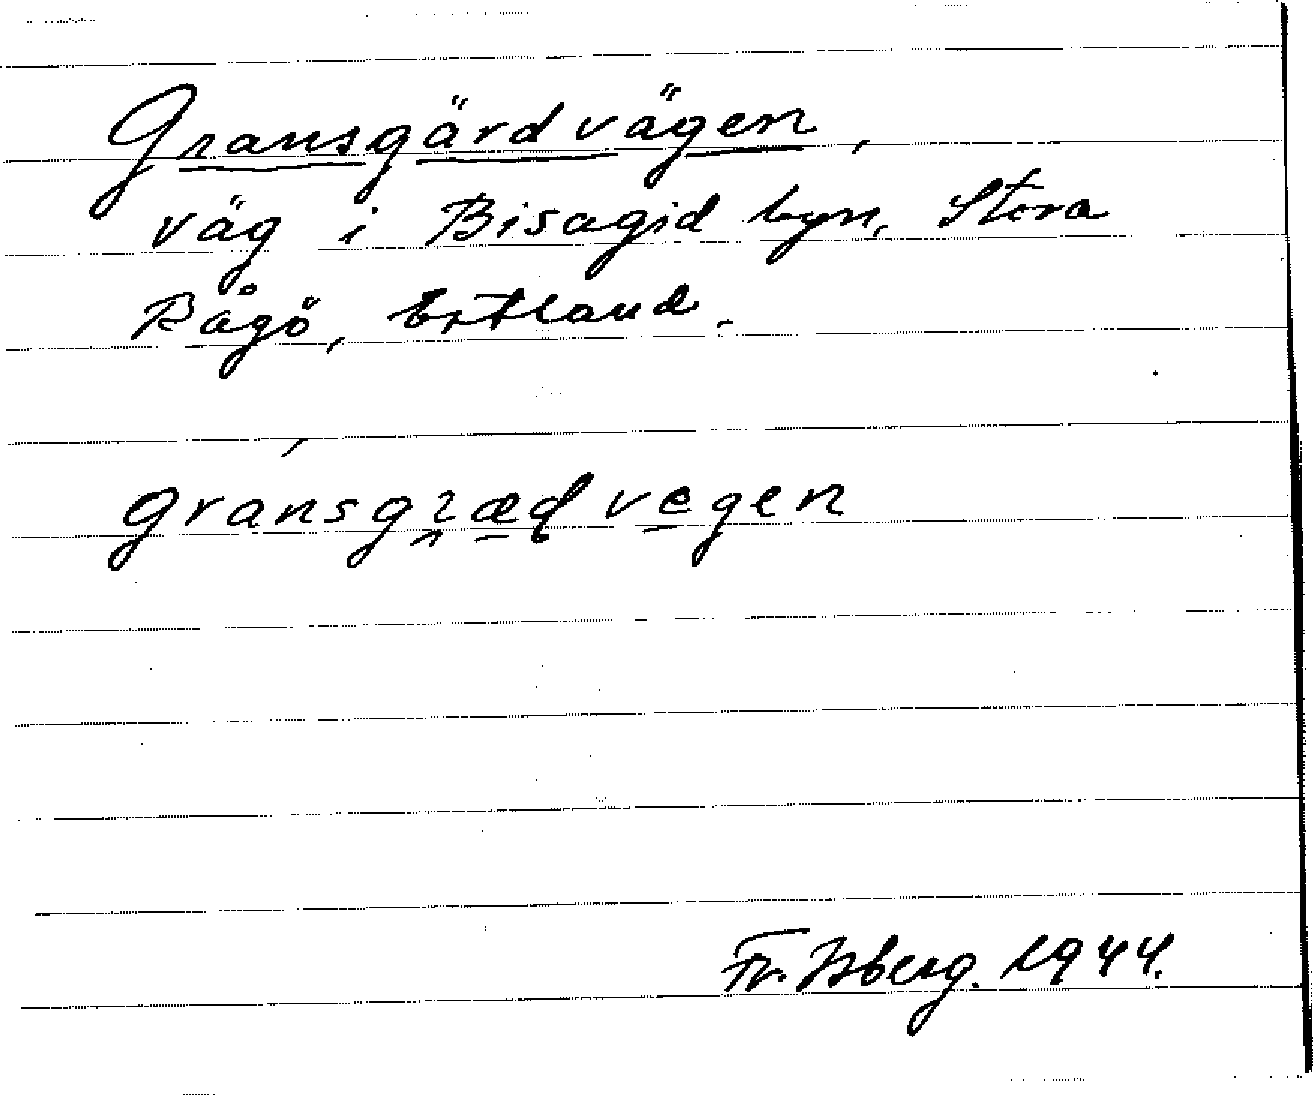 Gransgärdvägen,
väg i Bisagid byn, Stora
Rågö, Estland.
gránsgɿædvegen
Fr. Isberg. 1944.